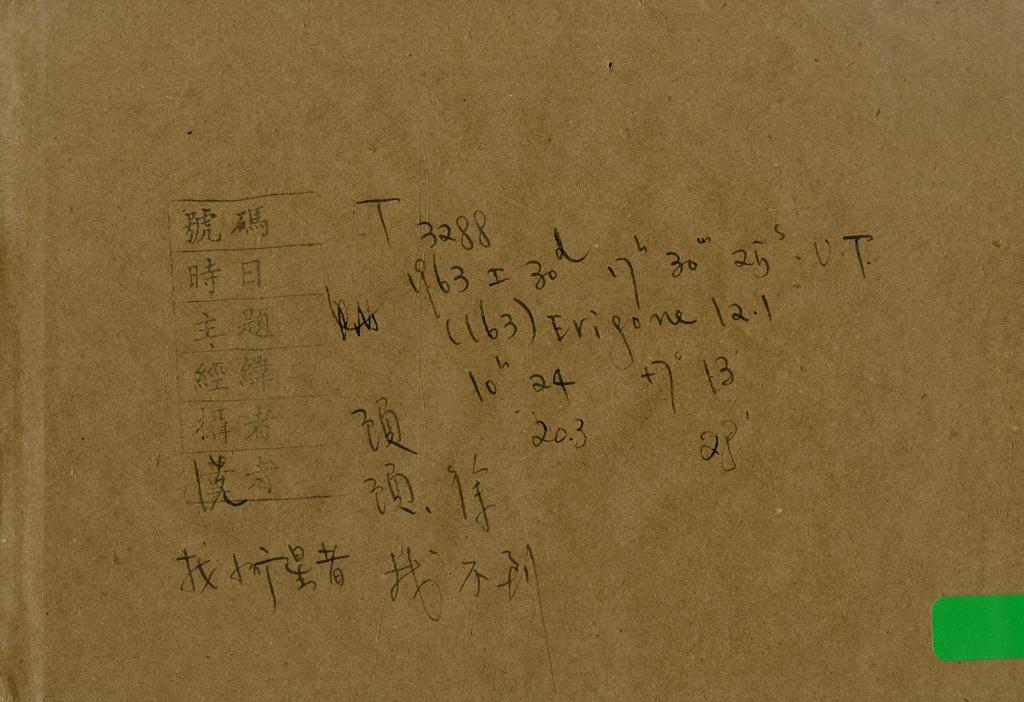 號碼 T 3288
時日 1963 I 30ᵈ 17ʰ 30ᵐ 25ˢ U.T.
主題 (163) Erigone 12.1
經緯 10ʰ 24 +7° 13'
20.3 28'
攝者
者 徐
找 星者 找不到